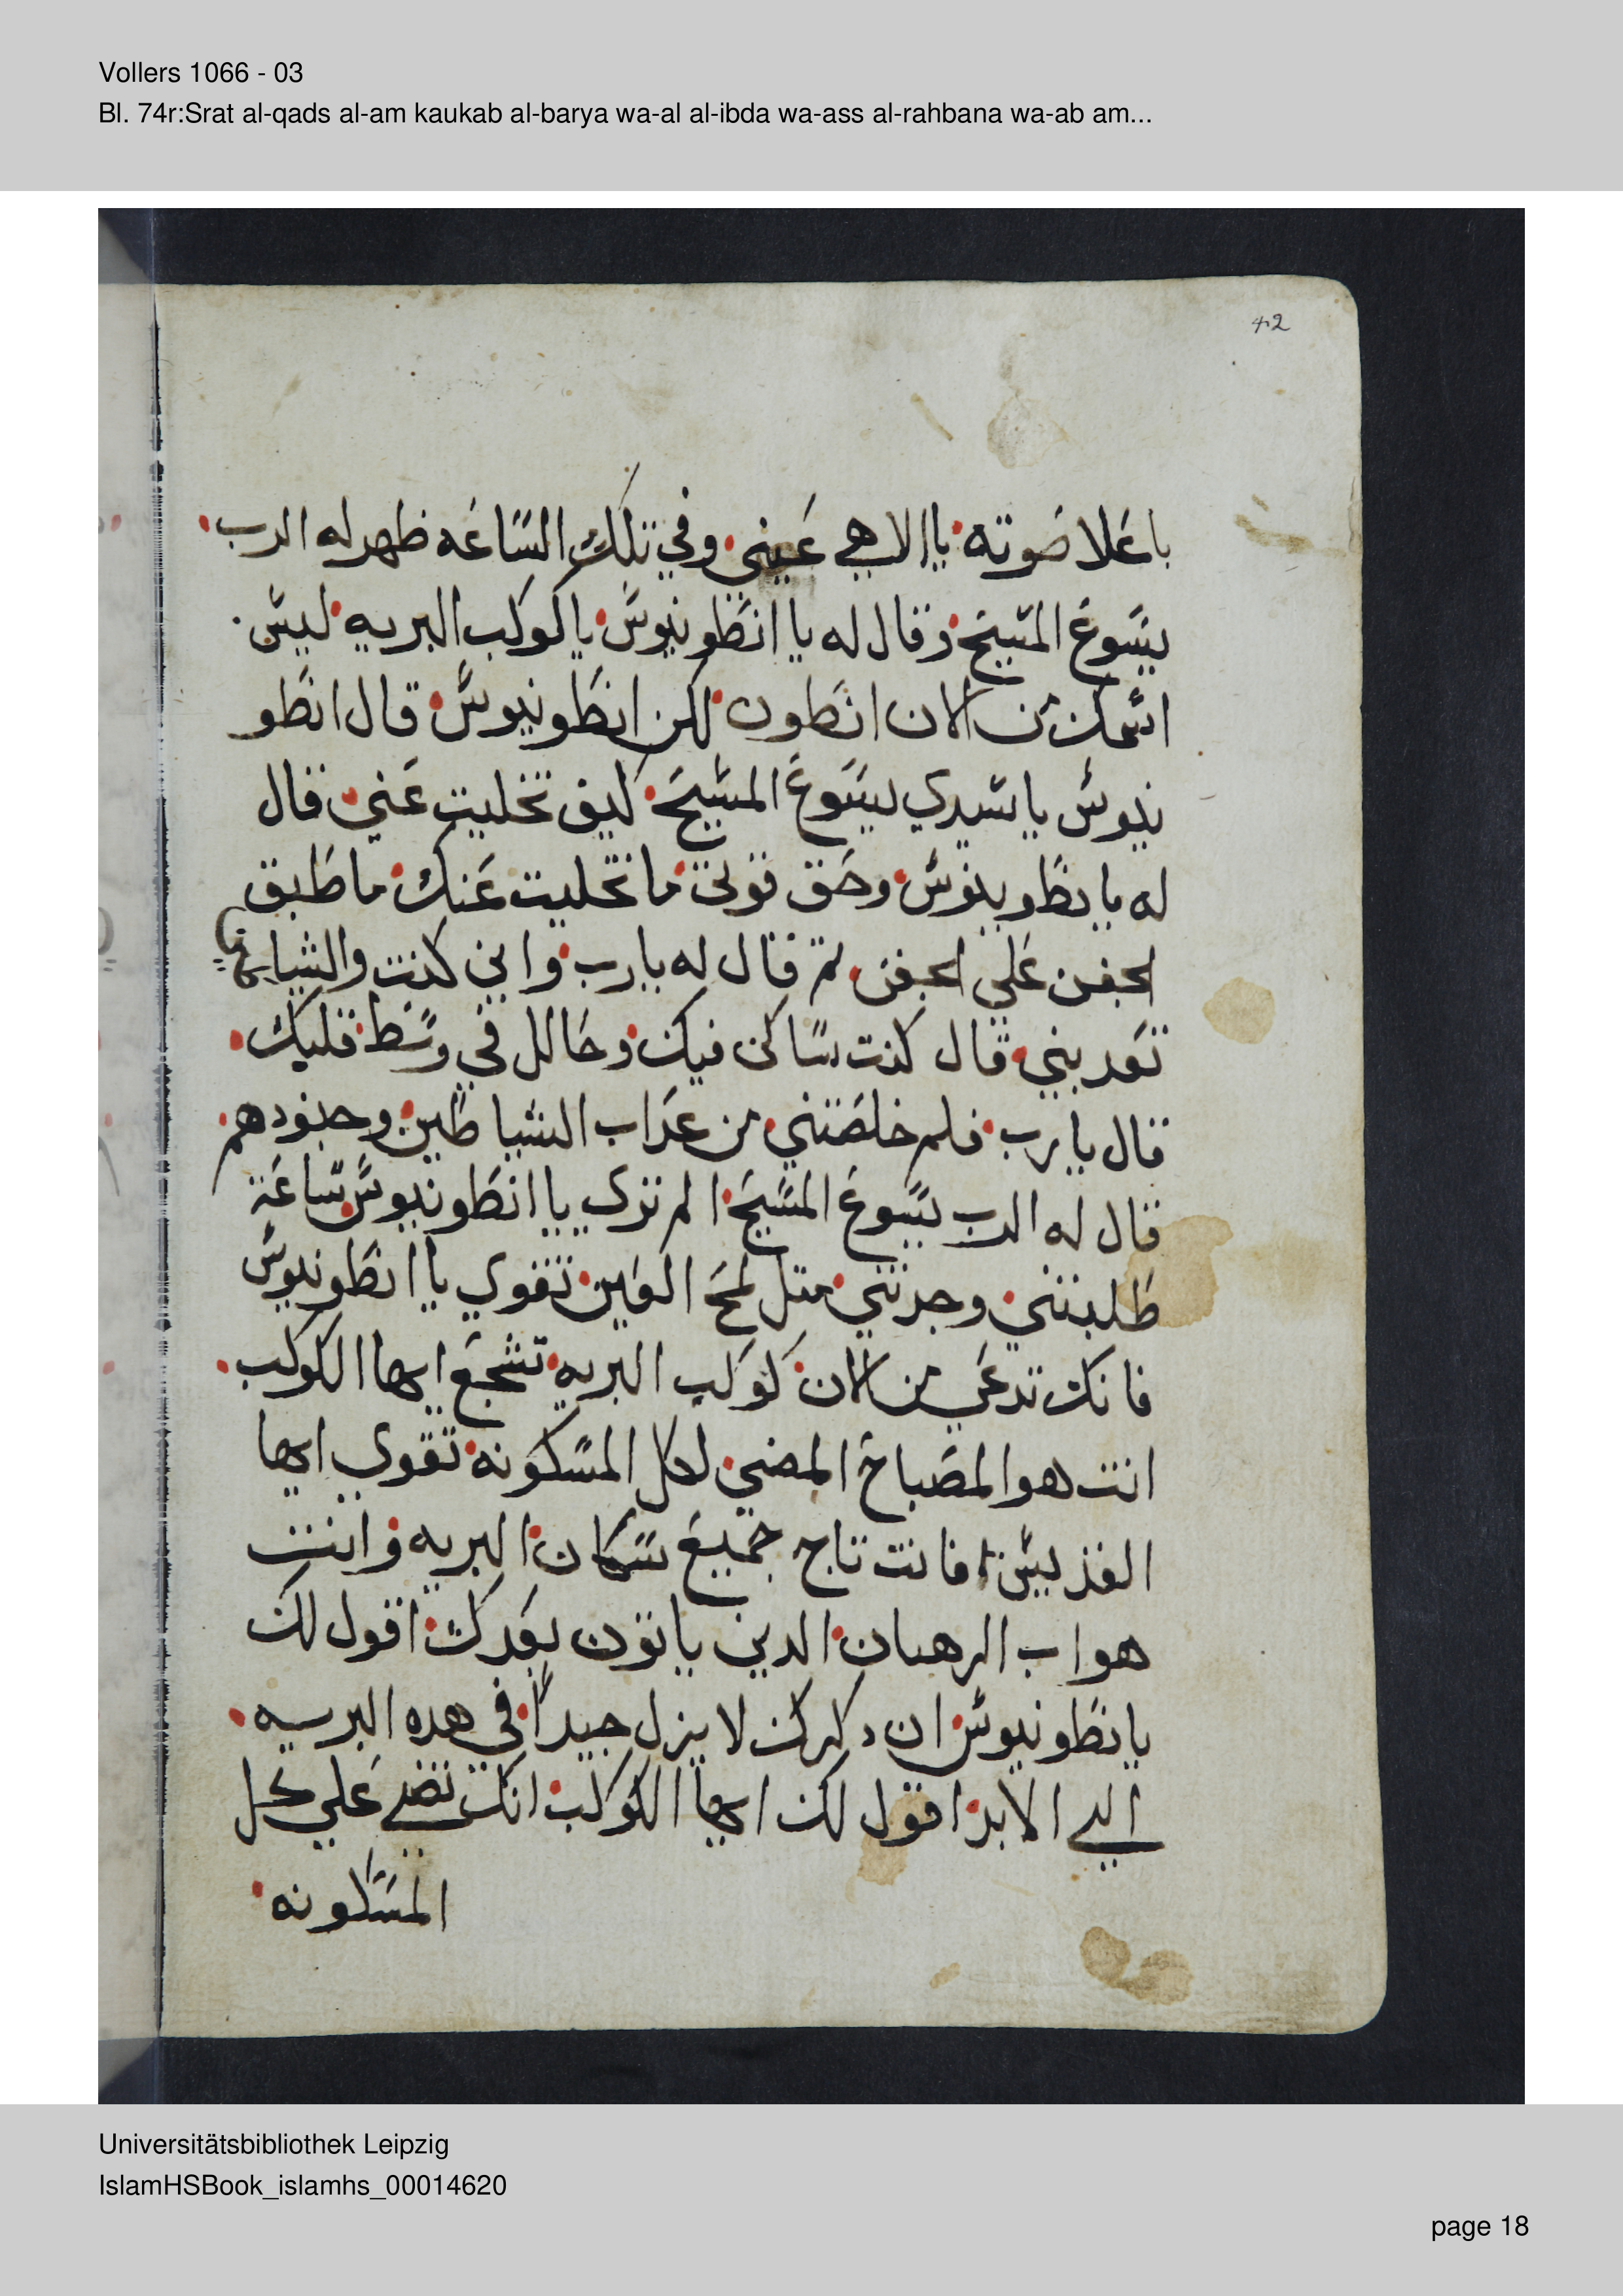 Vollers 1066 - 03
Bl. 74r:Srat al-qads al-am kaukab al-barya wa-al al-ibda wa-ass al-rahbana wa-ab am...
42
باعلا صوته يا الاهي عيني وفي تلك الساعه ظهر له الرب
يسوع المسيح وقال له يا انطونيوس يا كوكب البريه ليس
اسمك من الان انطون لكن انطونيوس قال انطو
نيوس يا سيدي يسوع المسيح كيف تخليت عني قال
له يا نطونيوس وحق قوتي ما تخليت عنك ما طبق
الجفن علي الجفن تم قال له يا رب واني كنت والشياطين
تعدبني قال كنت ساكن فيك وحالل في وسط قلبك
قال يا رب فلم خلصتني من عداب الشياطين وجنودهم
قال له الرب يسوع المسيح الم تري يا انطونيوس ساعة
طلبتني وجدتني متل لمح العين تقوي يا انطونيوس
فانك تدعي من الان كوكب البريه تشجع ايها الكوكب
انت هو المصباح المضي لكل المسكونه تقوي ايها
القديس فانت تاج جميع سكان البريه وانت
هو اب الرهبان الدين ياتون بعدك اقول لك
يا نطونيوس ان دكرك لا يزل جيدا في هده البريه
الي الابد اقول لك ايها الكوكب انك تضي علي كل
المسكونه
Universitätsbibliothek Leipzig
IslamHSBook_islamhs_00014620
page 18